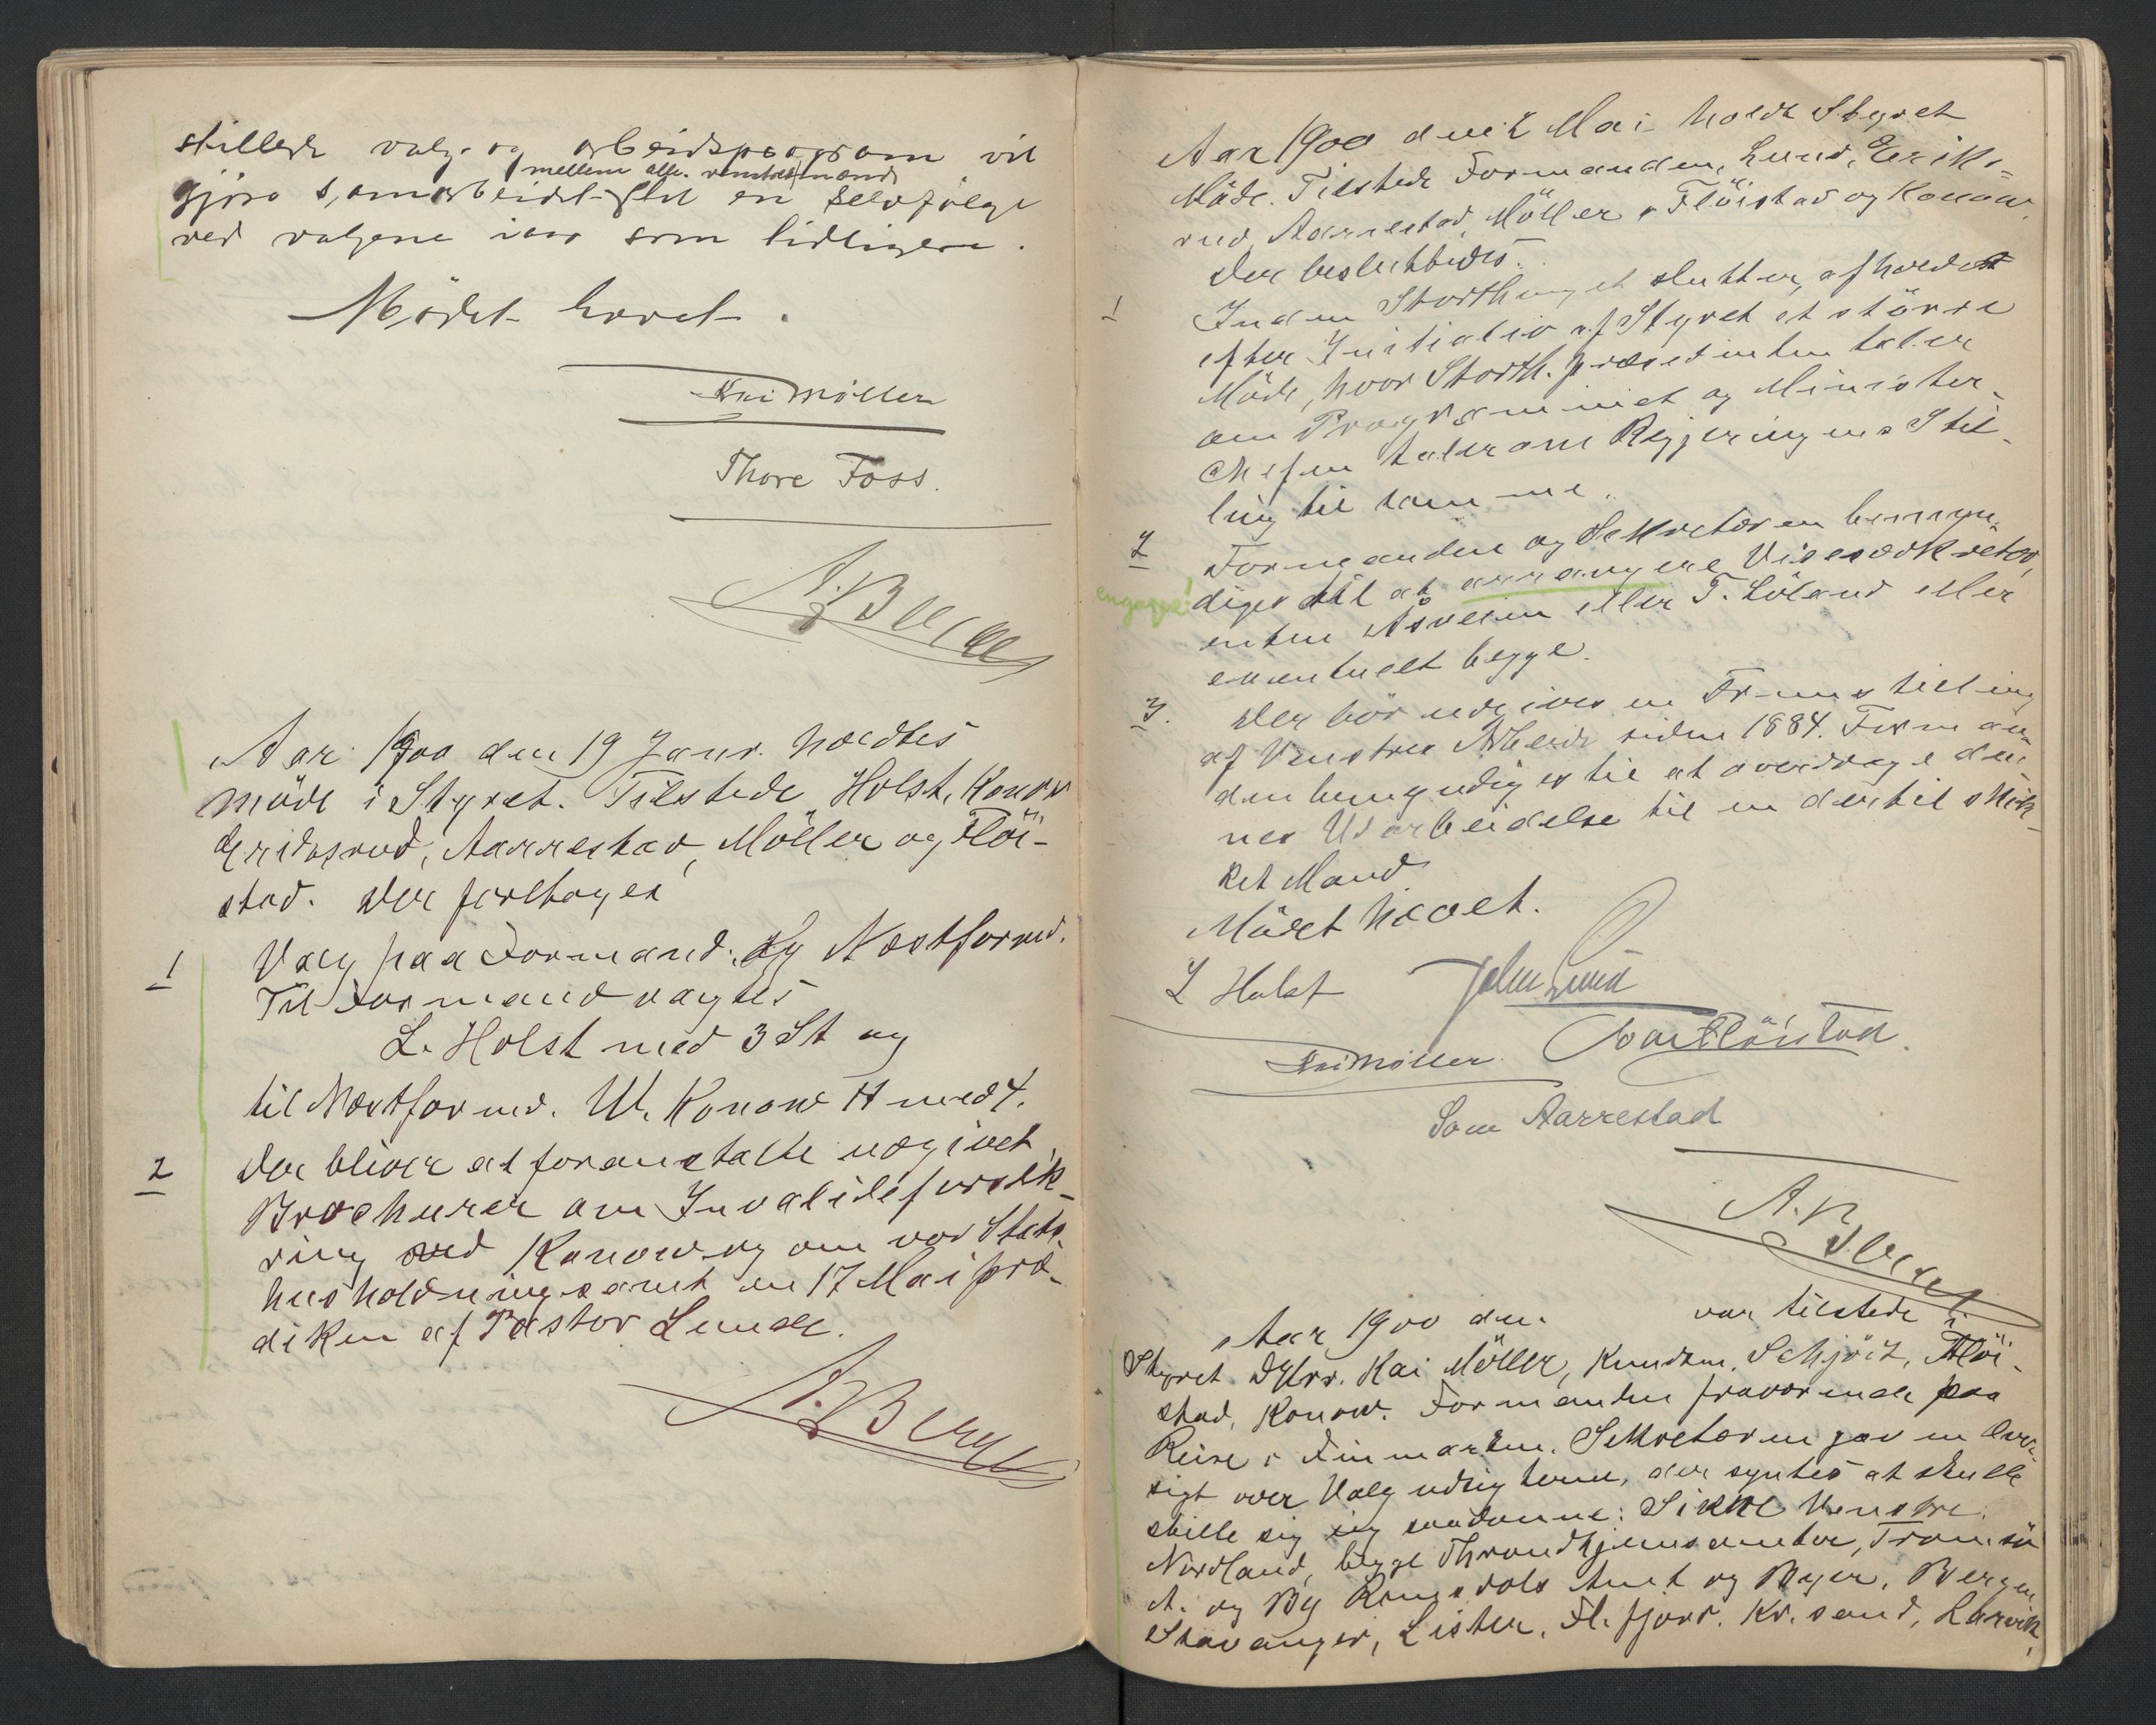 stillede valg- og arbeidsprogram vil
mellem alle venstremænd
gjøre samarbeidet til en selvfølge
ved valgene iaar som tidligere.
Mödet hevet.
Kai Möller
Thore Foss.
A. Berge
Aar 1900 den 19 Janr. holdtes
möde i Styret. Tilstede Holst, Konow
Eriksrud, Aarrestad, Möller og Flöi-
stad. Der foretoges
1 Valg paa Formand. og Næstformd.
Til Formand valgtes
L. Holst med 3 St og
til Næstformd. W. Konow H med 4.
2 Der bliver at foranstalte udgivet
Brochurer om Invalideforsik-
ring ved Konow og om vor Stats-
husholdning samt en 17 Mai præ-
diken af Pastor Lunde.
A. Berge
Aar 1900 den 2 Mai holdt Styret
Möde. Tilstede Formanden, Lund, Eriks-
rud, Aarrestad, Möller, Flöistad og Konow.
Der besluttedes.
1 Inden Storthinget slutter, afholdes
efter Initiativ af Styret et större
Möde, hvor Storth. præsidenten taler
om Programmet og Minister-
chefen taler om Regjeringens Stil-
ling til samme.
2 Formanden og Sekretæren bemyn-
engagere!
diges til at arrangere Visesekretær,
enten Åsveim eller T. Löland eller
eventuelt begge.
3. Der bör udgives en Fremstilling
af Venstres Arbeide siden 1884. Forman-
den bemyndiges til at overdrage den-
nes Udarbeidelse til en dertil skik-
ket Mand
Mödet hævet.
L Holst John Lund
Kai Möller. Ivar Flöistad.
Sven Aarrestad
A. Berge
Aar 1900 den var tilstede i
Styret DHrr. Kai Möller, Knudsen, Schjöt, Flöi-
stad, Konow. Formanden fraværende paa
Reise i Finmarken. Sekretæren gav en Over-
sigt over Valgudsigterne, der syntes at skulle
stille sig saadanne: Sikre Venstre.
Nordland, begge Throndhjems amter, Tromsö
A. og By Romsdals Amt og Byer, Bergen
Stavanger, Lister, Fl. fjord. Kr. sand, Larvik,